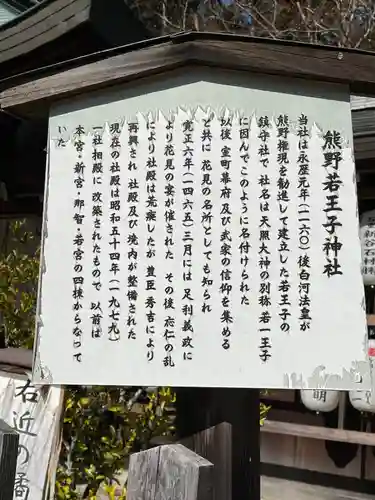 熊野若王子神社
当社は永暦元年（一一六〇）後白河法皇が
熊野権現を勧進して建立した若王子の
鎮守社で 社名は天照大神の別称 若一王子
に因んでこのように名付けられた
以後 室町幕府及び武家の信仰を集める
と共に 花見の名所としても知られ
寛正六年（一四六五）三月には 足利義政に
より花見の宴が催された その後 応仁の乱
により社殿は荒廃したが 豊臣秀吉により
再興され 社殿及び境内が整備された
現在の社殿は昭和五十四年（一九七九）
一社相殿に 改築されたもので 以前は
本宮・新宮・那智・若宮の四棟からなって
いた
右近の橘